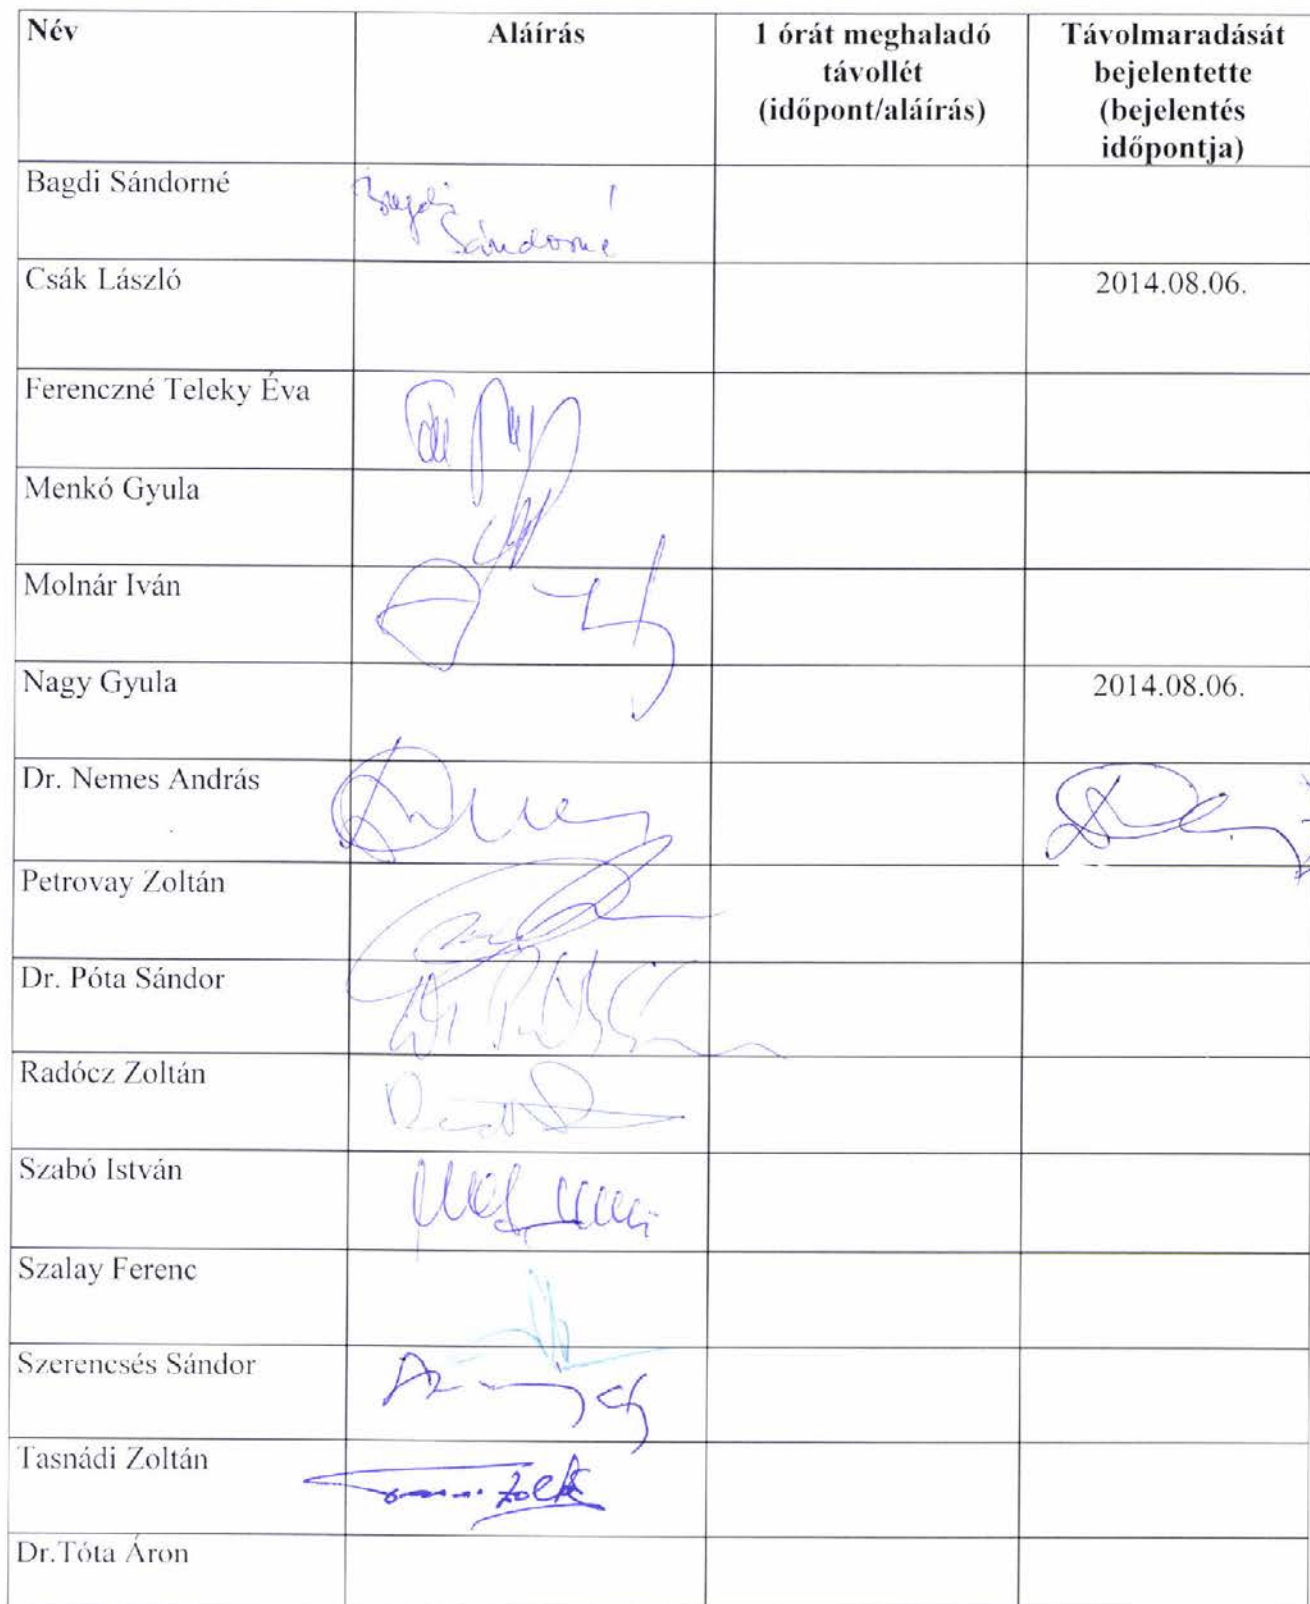 Név
Aláírás
1 órát meghaladó
távollét
(időpont/aláírás)
Távolmaradását
bejelentette
(bejelentés
időpontja)
Bagdi Sándorné
Bagdi
Sándorné
Csák László
2014.08.06.
Ferenczné Teleky Éva
Menkó Gyula
Molnár Iván
Nagy Gyula
2014.08.06.
Dr. Nemes András
Petrovay Zoltán
Dr. Póta Sándor
Radócz Zoltán
Szabó István
Szalay Ferenc
Szerencsés Sándor
Tasnádi Zoltán
Dr.Tóta Áron